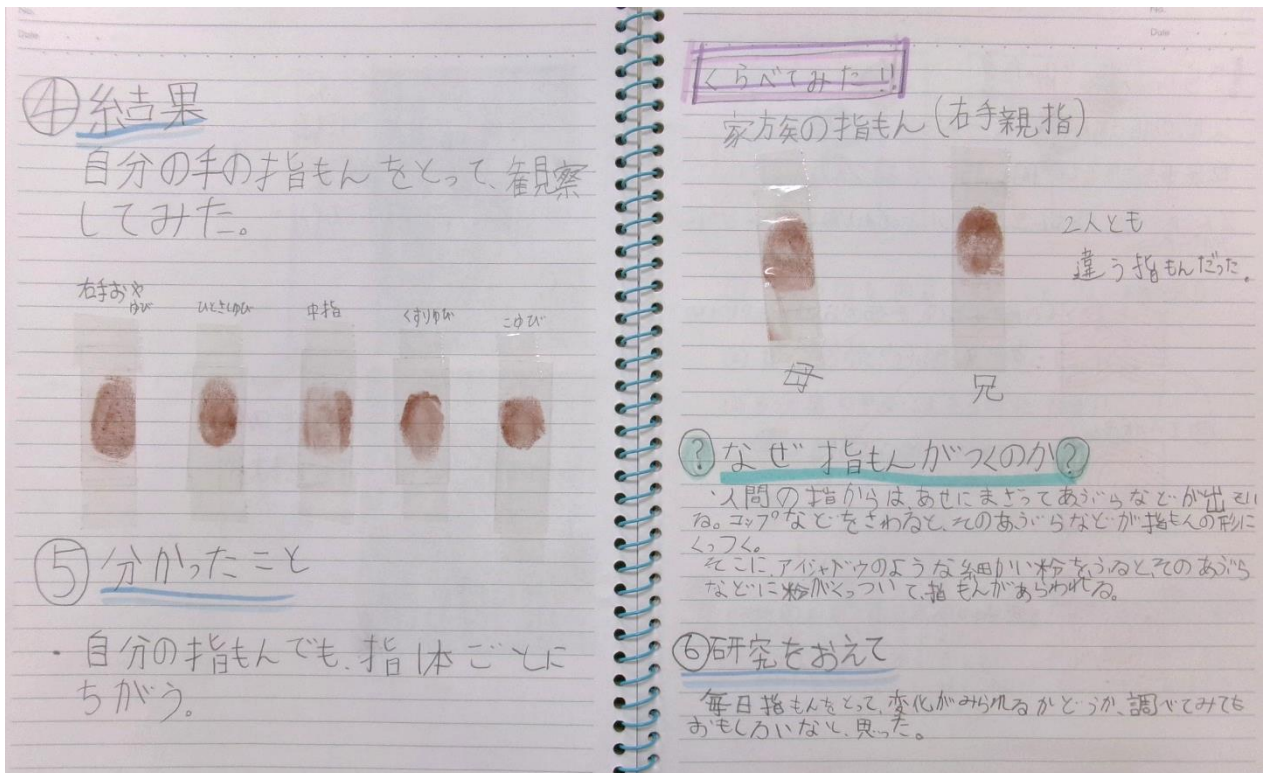 ④結果
自分の手の指もんをとって、観察
してみた。
右手おや
ゆび
ひとさしゆび
中指
くすりゆび
こゆび
⑤分かったこと
・自分の指もんでも、指1本ごとに
ちがう。
くらべてみた!!
家族の指もん(右手親指)
2人とも
違う指もんだった。
母
兄
?なぜ指もんがつくのか?
・人間の指からは、あせにまざってあぶらなどが出てい
る。コップなどをさわると、そのあぶらなどが指もんの形に
くっつく。
そこに、アイシャドウのような細かい粉をふると、そのあぶら
などに粉がくっついて、指もんがあらわれる。
⑥研究をおえて
毎日指もんをとって、変化がみられるかどうか、調べてみても
おもしろいなと、思った。
No.
Date
No.
Date